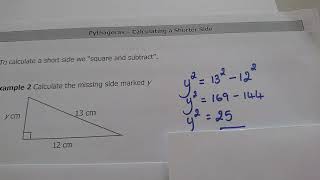 Pythagoras – Calculating a Shorter Side
To calculate a short side we "square and subtract".
xample 2 Calculate the missing side marked y
y cm
13 cm
12 cm
y² = 13² – 12²
y² = 169 – 144
y² = 25